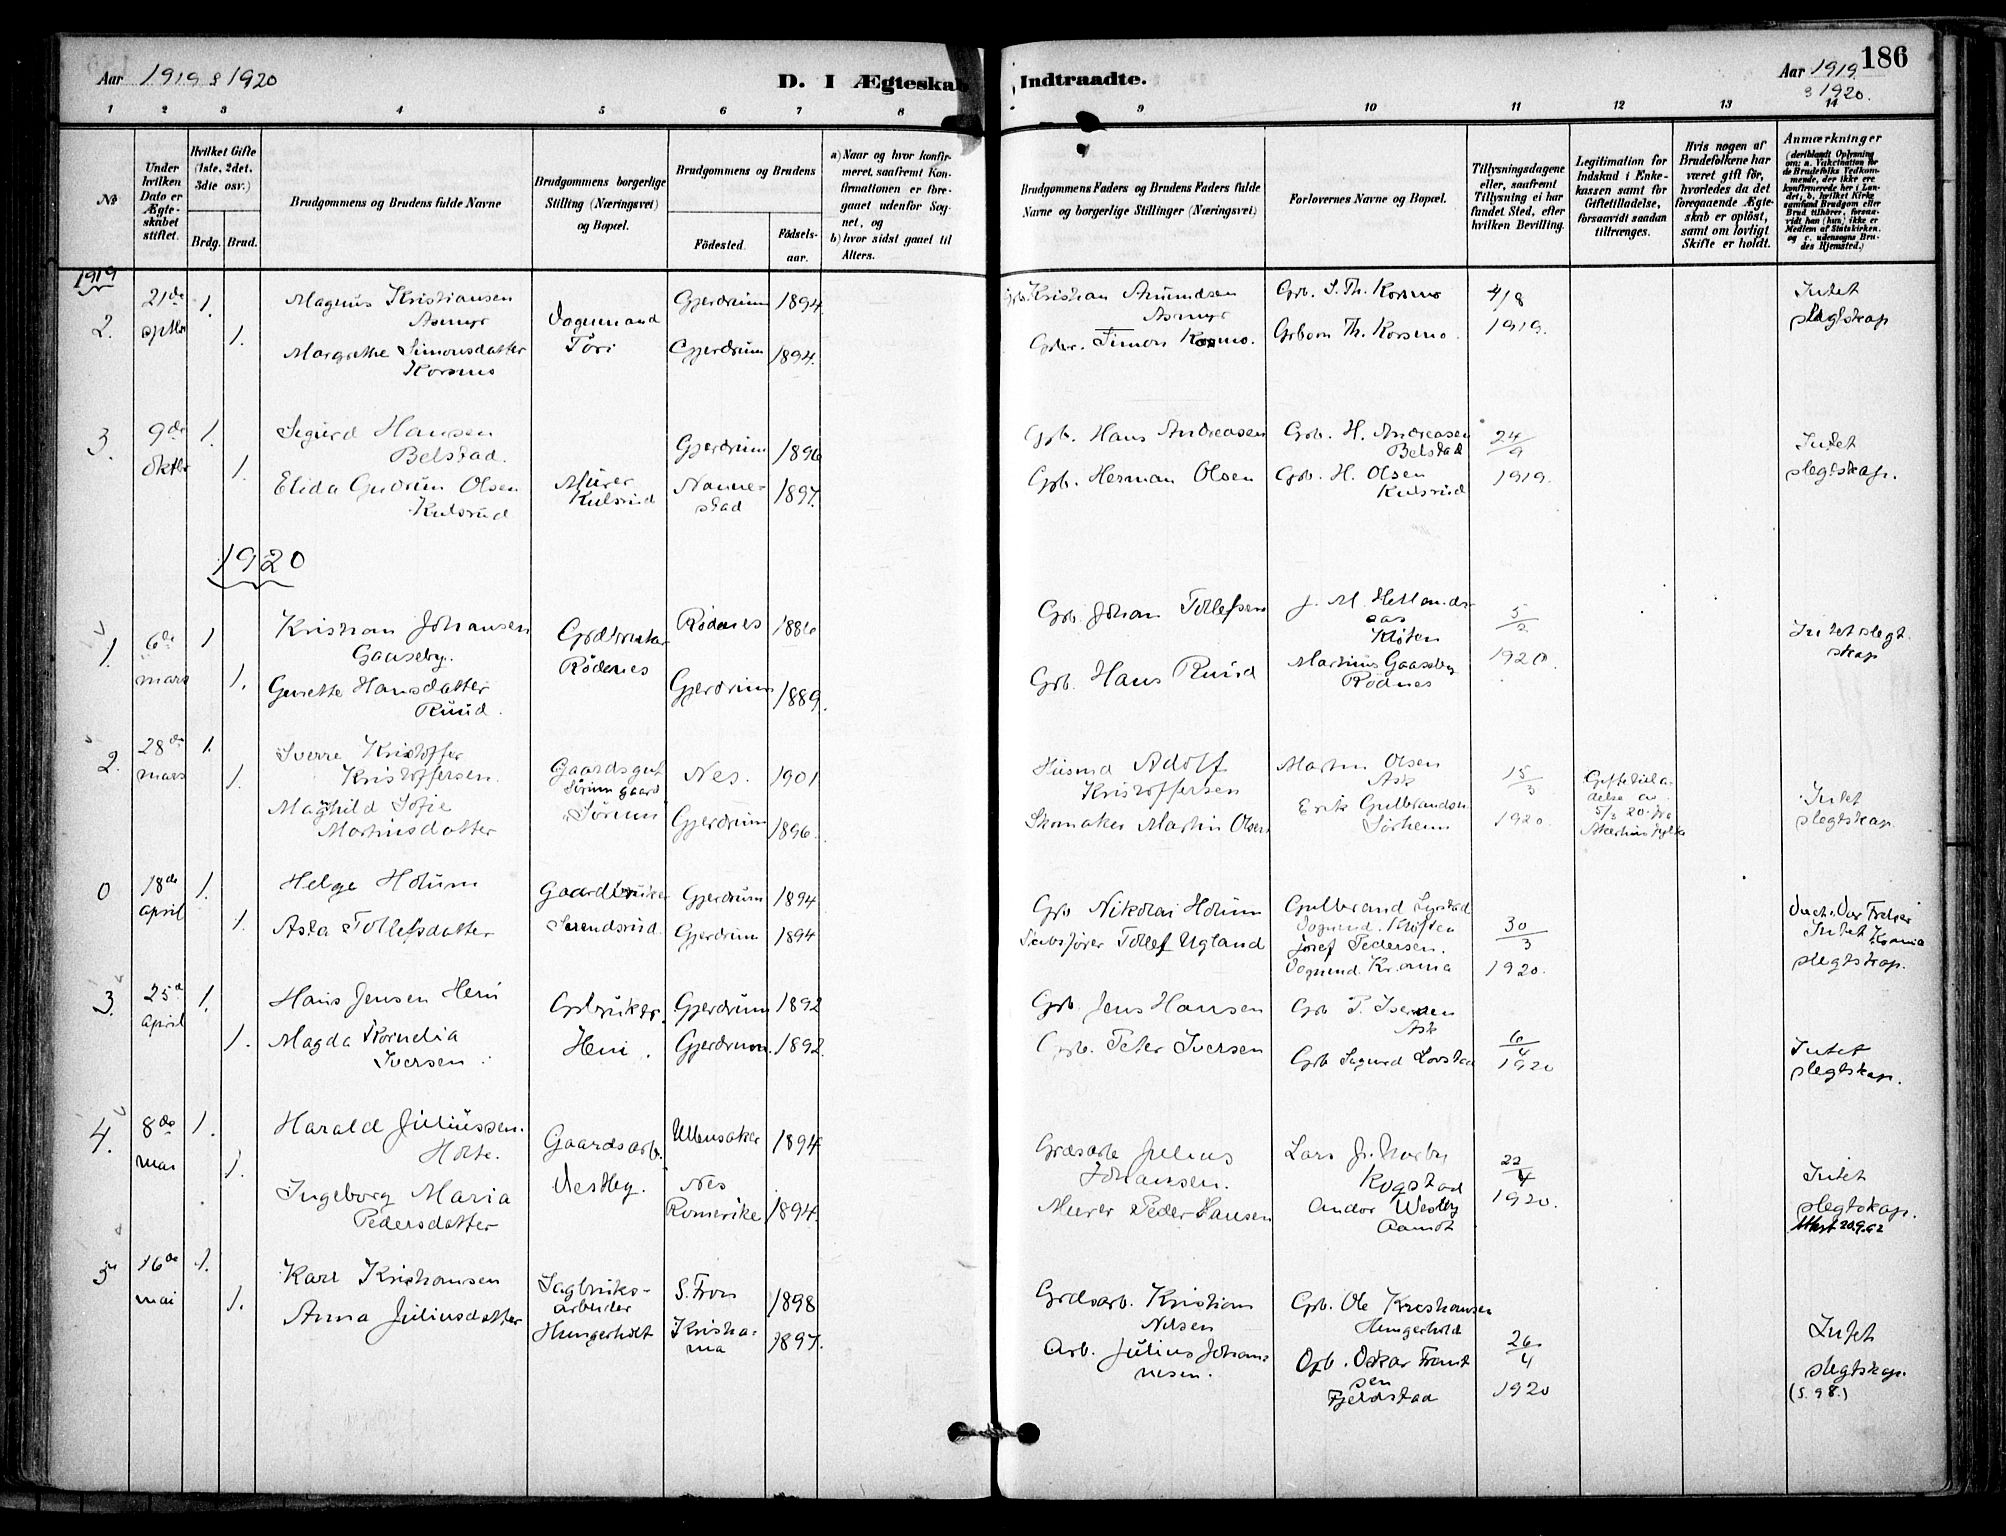 Aar 1919 & 1920
D. I Ægteskab
Indtraadte.
Aar 1919
& 1920.
186
1 2 3 4 5 6 7 8 9 10 11 12 13 14
No
Under hvilken Dato er Ægteskabet stiftet.
Hvilket Gifte (1ste, 2det, 3die osv.)
Brdg. Brud.
Brudgommens og Brudens fulde Navne
Brudgommens borgerlige Stilling (Næringsvei) og Bopæl.
Brudgommens og Brudens
Fødested.
Fødselsaar.
a) Naar og hvor konfirmeret, saafremt Konfirmationen er foregaaet udenfor Sognet, og
b) hvor sidst gaaet til Alters.
Brudgommens Faders og Brudens Faders fulde Navne og borgerlige Stillinger (Næringsvei)
Forlovernes Navne og Bopæl.
Tillysningsdagene eller, saafremt Tillysning ei har fundet Sted, efter hvilken Bevilling.
Legitimation for Indskud i Enkekassen samt for Giftetilladelse, forsaavidt saadan tiltrænges.
Hvis nogen af Brudefolkene har været gift før, hvorledes da det foregaaende Ægteskab er opløst, samt om lovligt Skifte er holdt.
Anmærkninger
(deriblandt Oplysning om: a. Vakcination for de Brudefolks Vedkommende, der ikke ere konfirmerede her i Landet, b. hvilket Kirkesamfund Brudgom eller Brud tilhører, forsaavidt han (hun) ikke er Medlem af Statskirken, og c. udensogns Brudes Hjemsted.)
1919
2. 21de septbr 1. 1.
Magnus Kristiansen Asmyr
Margrethe Simonsdatter Korsmo
Vognmand
Gjerdrum 1894
Gjerdrum 1894.
Kristian Amundsen Asmyr
Simon Korsmo.
Grb. S. Th. Korsmo
Th. Korsmo.
4/8 1919.
Intet slegtskap
3. 9de oktbr 1. 1.
Sigurd Hansen Belstad.
Elida Gudrun Olsen Kulsrud
Murer Kulsrud
Gjerdrum 1896
Nannestad 1897.
Grb. Hans Andreasen
Grb. Herman Olsen
Grb. H. Andreasen Belstad
Grb. H. Olsen Kulsrud
24/9 1919.
Intet slegtskap.
1920
1. 6de mars 1 1.
Kristian Johansen Gaaseby.
Hansdatter Ruud.
Rødenes
Rødenes 1886
Gjerdrum 1889.
Grb. Johan Tollefsen
Grb. Hans Ruud
Kløfen
Martinus Gaaseby Rødnes
5/2 1920.
Intet slegtskap
2. 28de mars 1. 1.
Sverre Kristoffer Kristoffersen.
Maghild Sofie Martinsdatter
Gaardsgut Sørum gaard
Sørum
Nes. 1901
Gjerdrum 1896.
Husmd Adolf Kristoffersen
Skomaker Martin Olsen
Martin Olsen Ask
Erik Gulbrandsen Sørheim
15/3 1920.
Giftetilladelse av 5/3 20 fra
Intet slegtskap.
0 18de april 1. 1.
Helge Holum
Asta Tollefsdatter
Gaardbruker
Gjerdrum 1894
Gjerdrum 1894
Nikolai Holum
Tollef Ugland
Gulbrand
Vognmd. Kløften
Josef Pedersen.
Vognmd. Kr.ania
30/3 1920.
Vor Frelser Krania
Intet slegtskap.
3. 25de april 1. 1.
Hans Jensen Heni
Magda Kornelia Iversen.
Gbruker. Heni.
Gjerdrum 1892
Gjerdrum 1892.
Grb. Jens Hansen
Grb. Peter Iversen
Grb P. Iversen Ask
Grb Sigurd Lovstad
6/4 1920
Intet slegtskap.
4. 8de mai 1. 1.
Harald Juliussen. Holte.
Ingeborg Maria Pedersdatter
Gaardsarb. Vestby.
Ullensaker 1894
Nes Romerike 1894.
Grdsarb Julius Johansen.
Murer Peder Hansen
Lars J. Nordby Kogstad
Andor Westby
22/4 1920.
Intet slegtskap.
20.9.62
5 16de mai 1. 1.
Karl Kristiansen
Anna Juliusdatter
Sagbruksarbeider Hungerholt
S. Fron 1898
Kristiania 1897.
Grdsarb. Kristian Nilsen
Arb. Julius Johannesen.
Grb. Ole Kristiansen Hungerhold
Grb. Oskar Frantsen Fjeldstad
26/4 1920
Intet slegtskap.
(S. 98.)